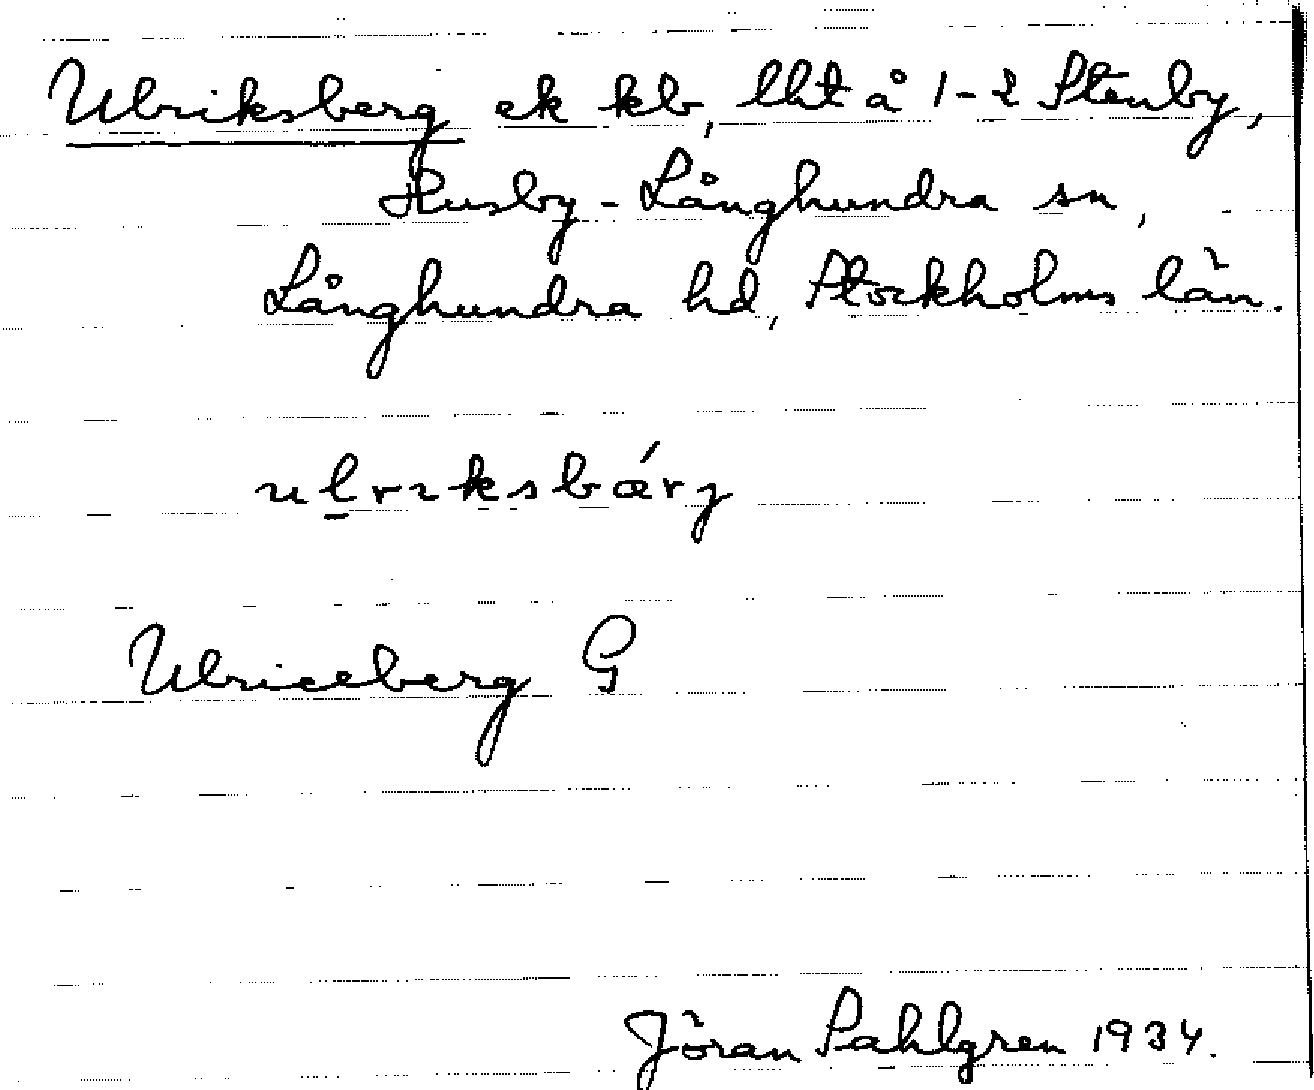 Ulriksberg ek kb, lht å 1-2 Stenby,
Husby-Långhundra sn,
Långhundra hd, Stockholms län.
ul̲rıksbærj́
Ulriceberg G
Jöran Sahlgren 1934.